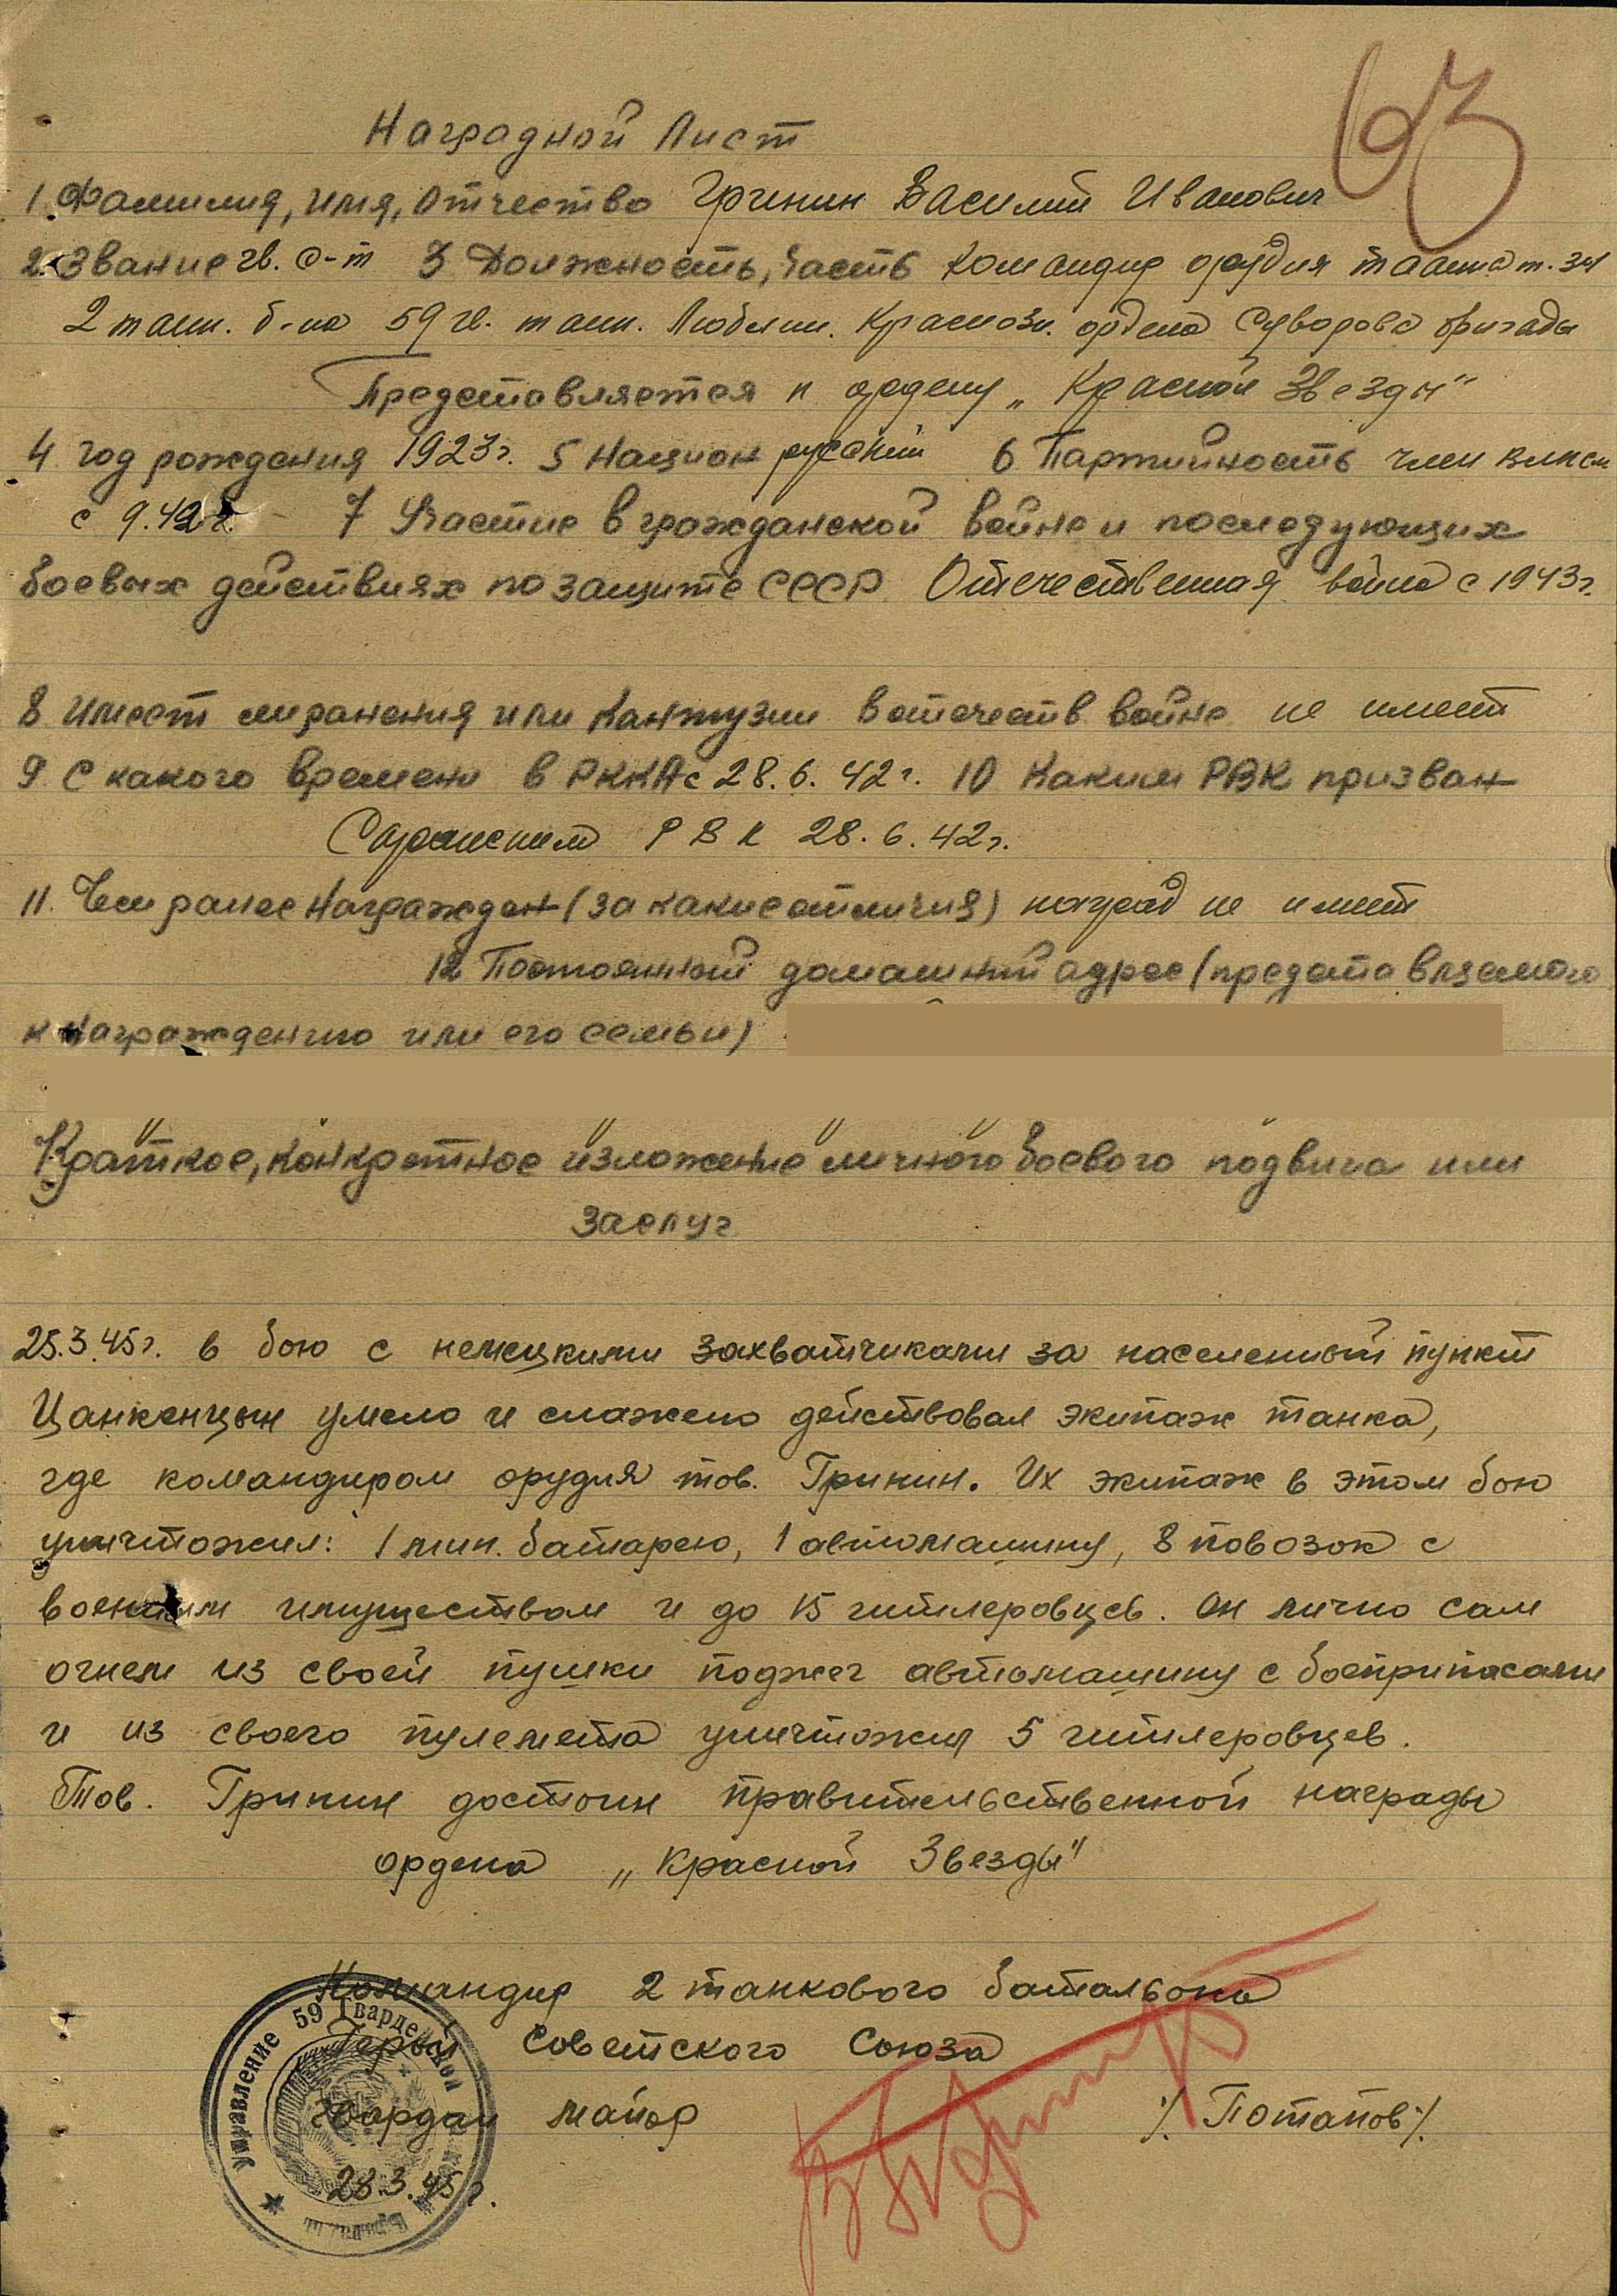 63
Наградной Лист
1. Фамилия, имя, отчество Гринин Василий Иванович
2. Звание гв. с-т 3 Должность, часть командир орудия танка т-34
2 танк. б-на 59 гв. танк. Люблин. Краснозн. ордена Суворова бригады
Представляется к ордену „Красной Звезды"
4 год рождения 1923г. 5 Национ русский 6 Партийность член влксм
с 9.42 г. 7 Участие в гражданской войне и последующих
боевых действиях по защите СССР Отечественная война с 1943г.
8 Имеет ли ранения или контузии в отечеств. войне не имеет
9 С какого времени в РККА с 28.6.42г. 10 Каким РВК призван
Саранским РВК 28.6.42г.
11. Чем ранее награжден (за какие отличия) наград не имеет
12 Постоянный домашний адрес (представляемого
к награждению или его семьи)
Краткое, конкретное изложение личного боевого подвига или
заслуг
25.3.45г. в бою с немецкими захватчиками за населенный пункт
Цанкенцын умело и слажено действовал экипаж танка,
где командиром орудия тов. Гринин. Их экипаж в этом бою
уничтожил: 1 мин. батарею, 1 автомашину, 8 повозок с
военным имуществом и до 15 гитлеровцев. Он лично сам
огнем из своей пушки поджег автомашину с боеприпасами
и из своего пулемета уничтожил 5 гитлеровцев.
Тов. Гринин достоин правительственной награды
ордена „Красной Звезды"
Командир 2 танкового батальона
Герой Советского Союза
гвардии майор /Потапов/.
28.3.45г.
Управление 59 Гвардейской